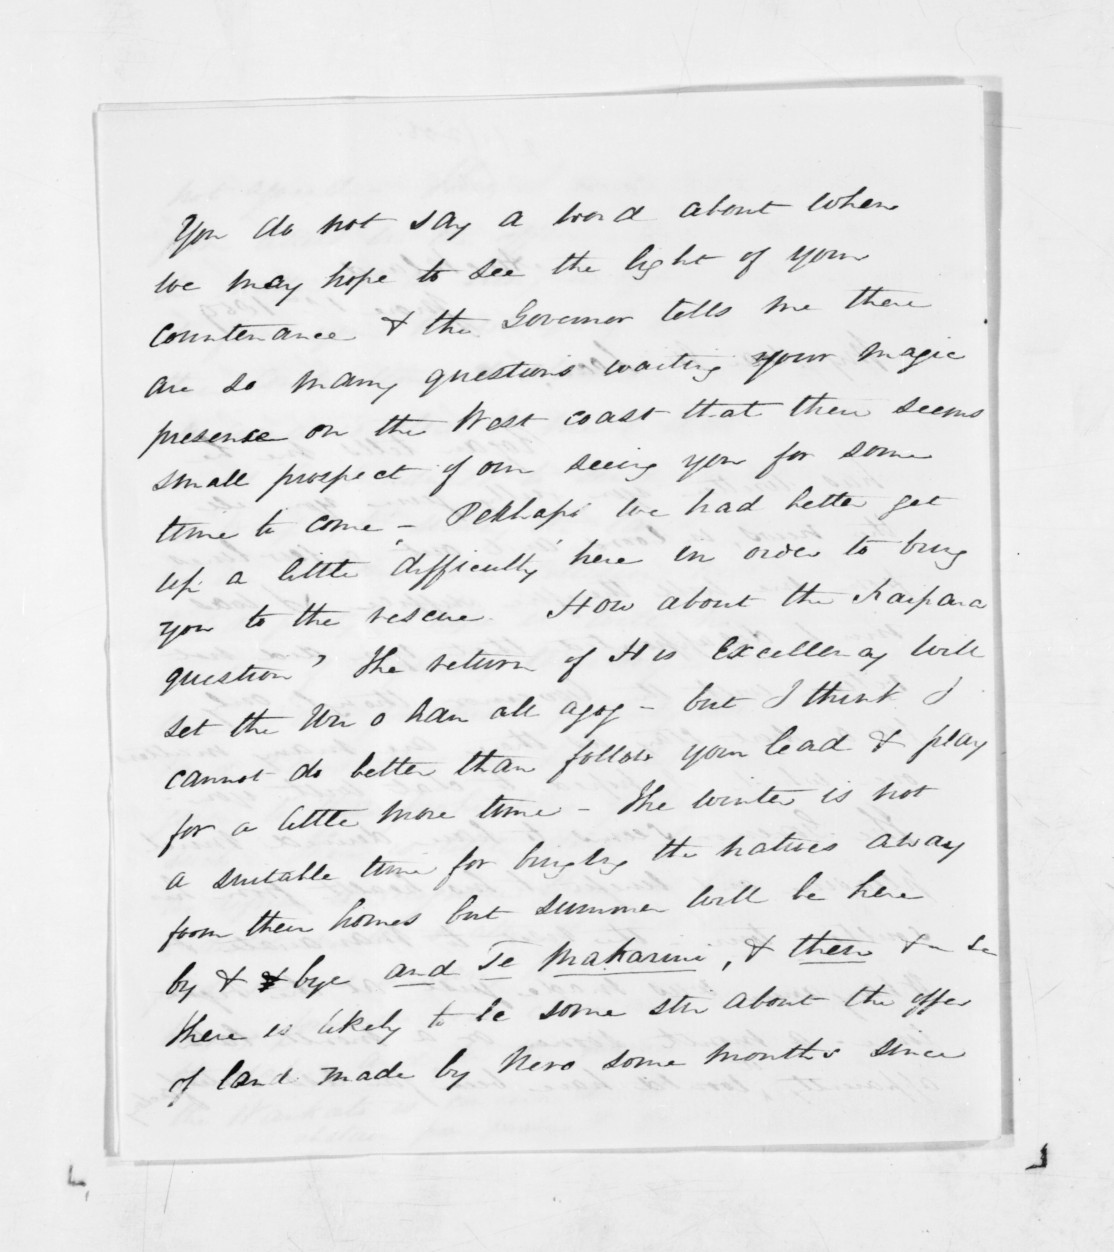 You do not say a word about when
we may hope to see the light of your
countenance & the Governor tells me there
are so many questions waiting your magic
presence on the West coast that there seems
small prospect of our seeing you for some
time to come - Perhaps we had better get
up a little 'difficulty' here in order to bring
you to the rescue. How about the Kaipara
question? The return of His Excellency will
set the all agog - but I think I
cannot do better than follow your lead & play
for a little more time - The winter is not
a suitable time for bringing the natives away
from their homes but summer will be here
by & bye and Te Makarini, & then
there is likely to be some stir about the offer
of land made by Nero some months since